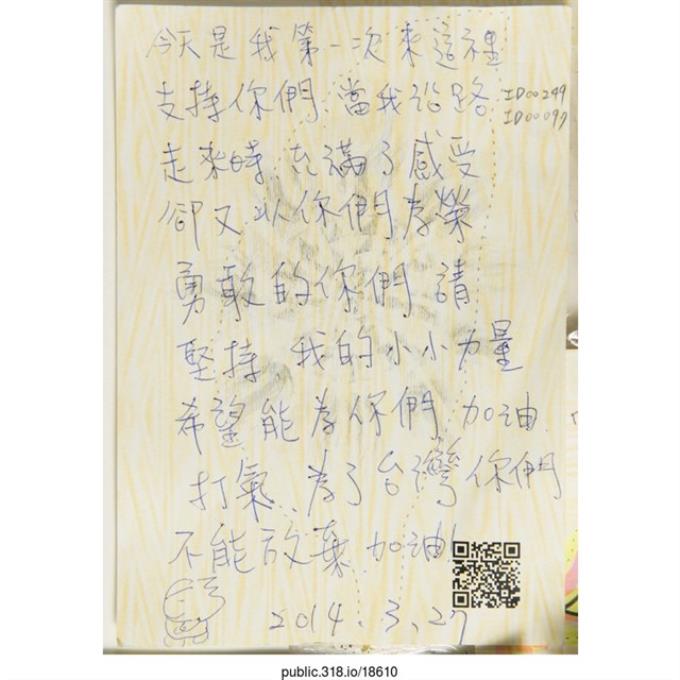 今天是我第一次來這裡
支持你們、當我沿路
ID00249
ID00097
走來時、充滿了感受
卻又以你們為榮
勇敢的你們 請
堅持、我的小小力量
希望能為你們 加油
打氣、為了台灣 你們
不能放棄 加油!
2014.3.27
public.318.io/18610